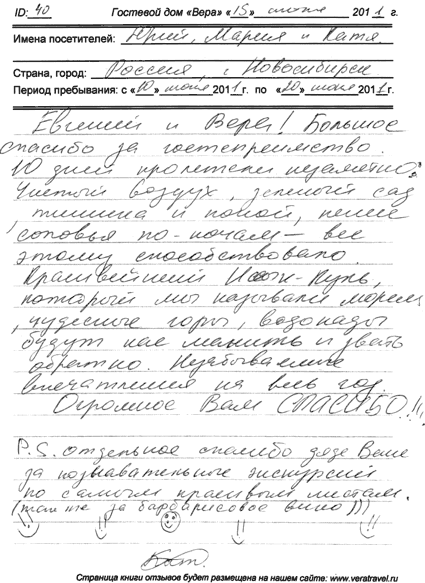 ID: 40 Гостевой дом «Вера» «15» июля 2011 г.
Имена посетителей: Юрий, Мария и Катя.
Страна, город: Россия, г. Новосибирск
Период пребывания: с «10» июля 2011 г. по «20» июля 2011 г.
Евгений и Вера! Большое
спасибо за гостеприимство.
10 дней пролетели незаметно.
Чистый воздух, зеленый сад
тишина и покой, пение
соловья по-ночам — все
этому способствовало.
Красивейший Иссык-Куль,
который мы называли морем
, чудесные горы, водопады
будут нас манить и звать
обратно. Незабываемые
впечатления на весь год.
Огромное Вам СПАСИБО!!!
P.S. отдельное спасибо дяде Жене
за познавательные экскурсии
по самым красивым местам.
(так же за барбарисовое вино)))
Страница книги отзывов будет размещена на нашем сайте: www.veratravel.ru